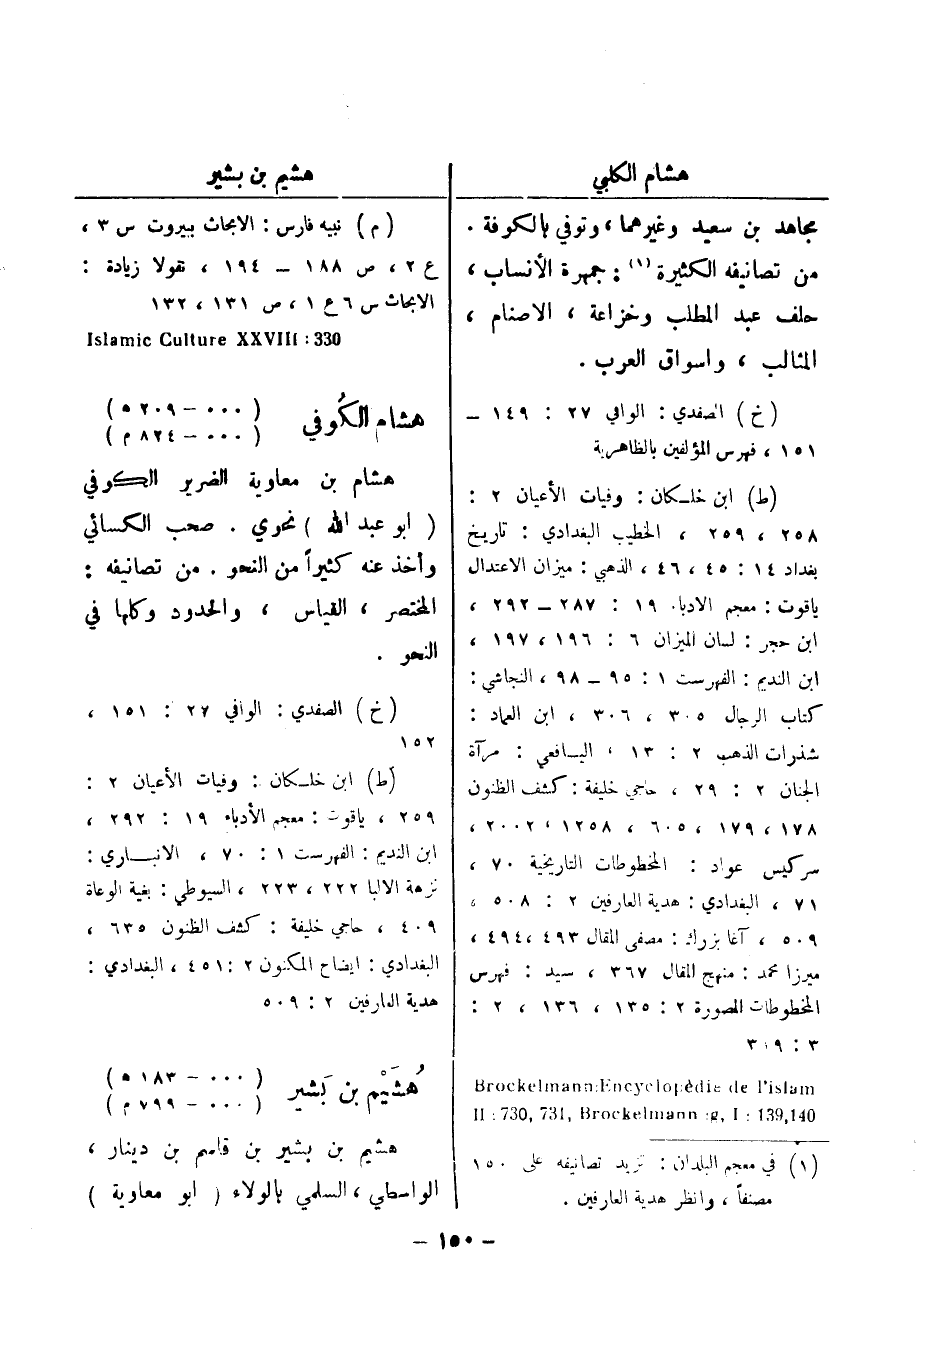 هشام الكلبي
مجاهد بن سعيد وغيرهما ، وتوفي بالكوفة .
من تصانيفه الكثيرة (١) : جمهرة الأنساب ،
حلف عبد المطلب وخزاعة ، الاصنام ،
المثالب ، واسواق العرب .
(خ) الصفدي : الوافي ٢٧ : ١٤٩ –
١٥١ ، فهرس المؤلفين بالظاهرية
(ط) ابن خلكان : وفيات الأعيان ٢ :
٢٥٨ ، ٢٥٩ ، الخطيب البغدادي : تاريخ
بغداد ١٤ : ٤٥ ، ٤٦ ، الذهبي : ميزان الاعتدال
ياقوت : معجم الادباء ١٩ : ٢٨٧ – ٢٩٢ ،
ابن حجر : لسان الميزان ٦ : ١٩٦ ، ١٩٧ ،
ابن النديم : الفهرست ١ : ٩٥ – ٩٨ ، النجاشي :
كتاب الرجال ٣٠٥ ، ٣٠٦ ، ابن العماد :
شذرات الذهب ٢ : ١٣ ، اليافعي : مرآة
الجنان ٢ : ٢٩ ، حاجي خليفة : كشف الظنون
١٧٨ ، ١٧٩ ، ٦٠٥ ، ١٢٥٨ ، ٢٠٠٢ ،
سركيس عواد : المخطوطات التاريخية ٧٠ ،
٧١ ، البغدادي : هدية العارفين ٢ : ٥٠٨ ،
٥٠٩ ، آغا بزرك : مصفى المقال ٤٩٣ ، ٤٩٤ ،
ميرزا محمد : منهج المقال ٣٦٧ ، سيد : فهرس
المخطوطات المصورة ٢ : ١٣٥ ، ١٣٦ ، ٢ :
٣ : ٣٠٩
Brockelmann:Encyclopédie de l'islam
II : 730, 731, Brockelmann :g, I : 139,140
(١) في معجم البلدان : تزيد تصانيفه على ١٥٠
مصنفاً ، وانظر هدية العارفين .
هشيم بن بشير
(م) نبيه فارس : الابحاث بيروت س ٣ ،
ع ٢ ، ص ١٨٨ – ١٩٤ ، نقولا زيادة :
الابحاث س ٦ ع ١ ، ص ١٣١ ، ١٣٢
Islamic Culture XXVIII : 330
هشام الكُوفي (٠٠٠ – ٢٠٩ ه)
(٠٠٠ – ٨٢٤ م)
هشام بن معاوية الضرير الكوفي
( ابو عبد الله ) نحوي . صحب الكسائي
وأخذ عنه كثيراً من النحو . من تصانيفه :
المختصر ، القياس ، والحدود وكلها في
النحو .
(خ) الصفدي : الوافي ٢٧ : ١٥١ ،
١٥٢
(ط) ابن خلكان : وفيات الأعيان ٢ :
٢٥٩ ، ياقوت : معجم الأدباء ١٩ : ٢٩٢ ،
ابن النديم : الفهرست ١ : ٧٠ ، الانباري :
نزهة الالبا ٢٢٢ ، ٢٢٣ ، السيوطي : بغية الوعاة
٤٠٩ ، حاجي خليفة : كشف الظنون ٦٣٥ ،
البغدادي : ايضاح المكنون ٢ : ٤٥١ ، البغدادي :
هدية العارفين ٢ : ٥٠٩
هُشَيْم بن بَشير (٠٠٠ – ١٨٣ ه)
(٠٠٠ – ٧٩٩ م)
هشيم بن بشير بن قاسم بن دينار ،
الواسطي ، السلمي بالولاء ( ابو معاوية )
– ١٥٠ –